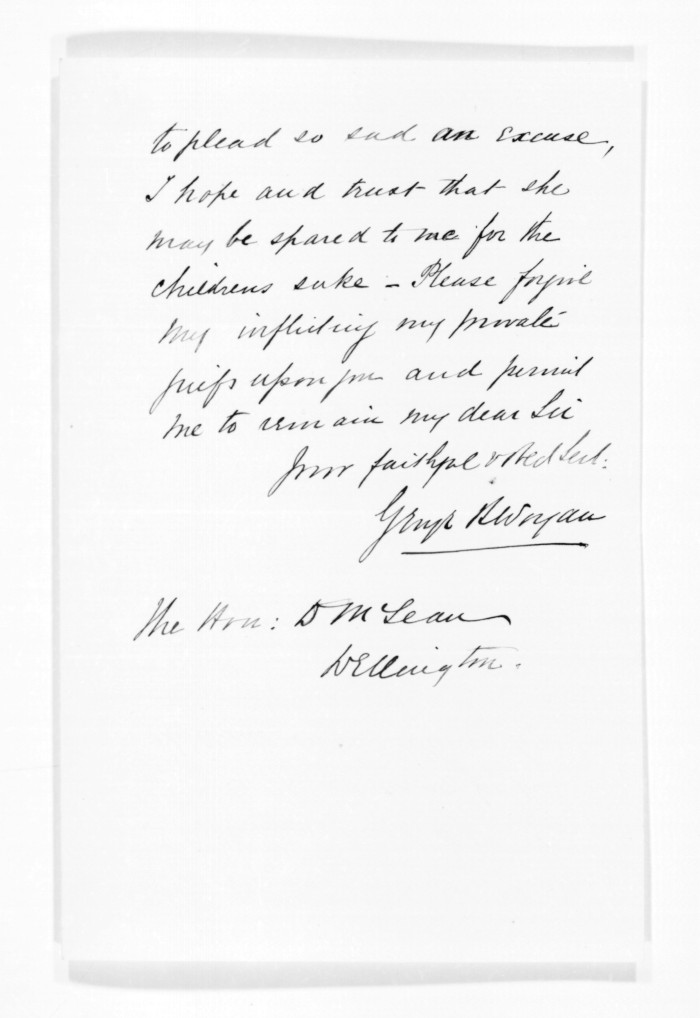 to plead so sad an excuse,
I hope and trust that she
may be spared to me for the
childrens sake - Please forgive
my inflicting my private
griefs upon you and permit
me to remain my dear Sir
Your faithful & obed Servt:
George Worgan
The Hon: D McLean
Wellington.